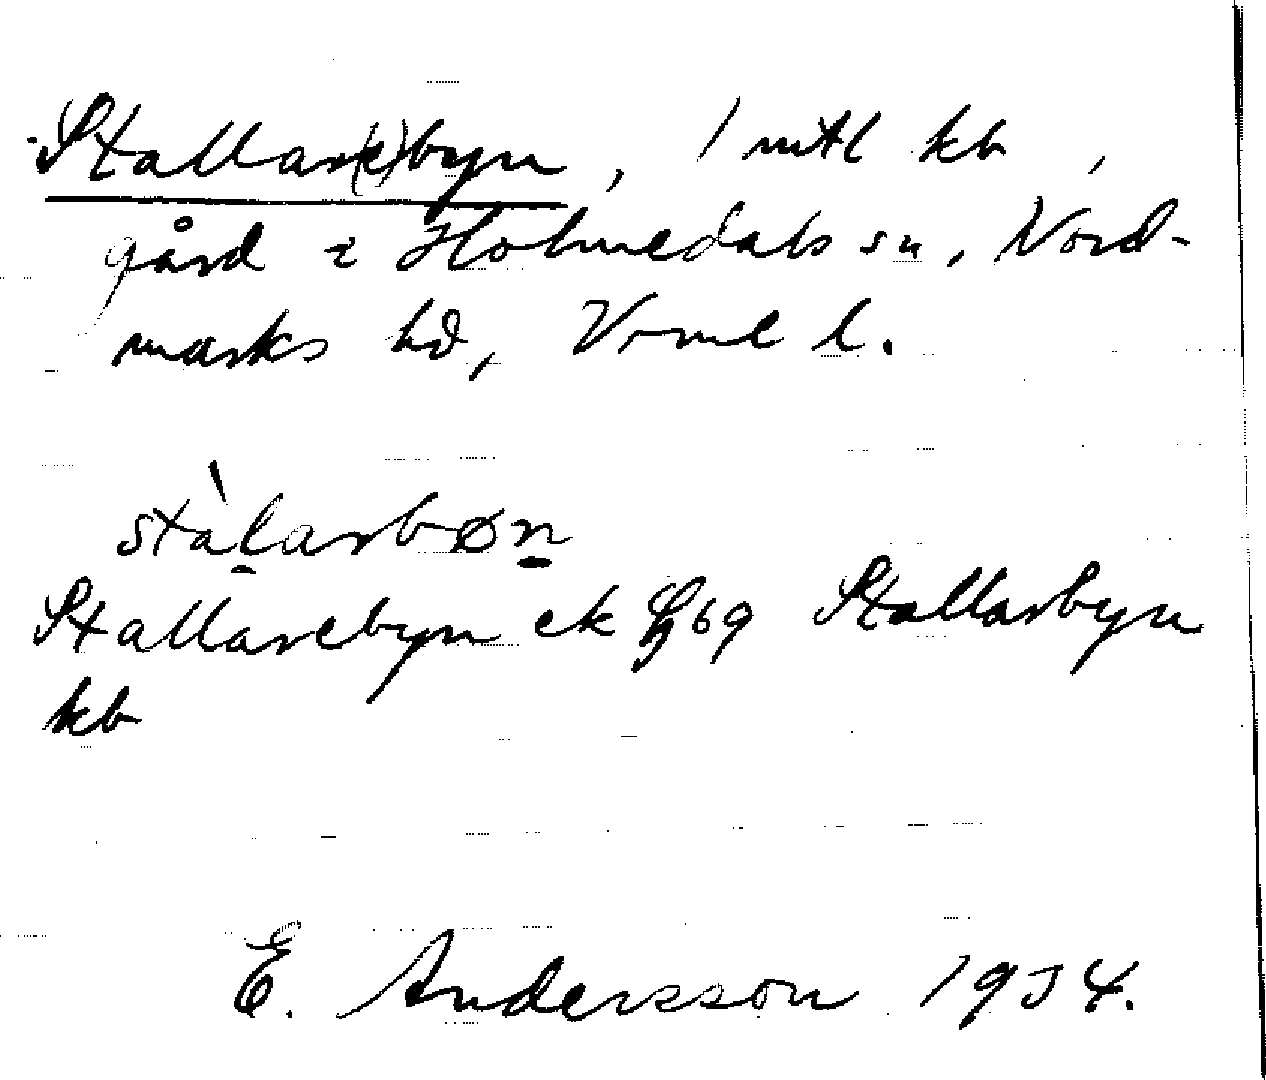 Stallar(e)byn, 1 mtl kb,
gård i Holmedals sn, Nord-
marks hd, Vrml l.
stàlarbøn
Stallarebyn ek 69 Stallarbyn
kb
E. Andersson 1934.